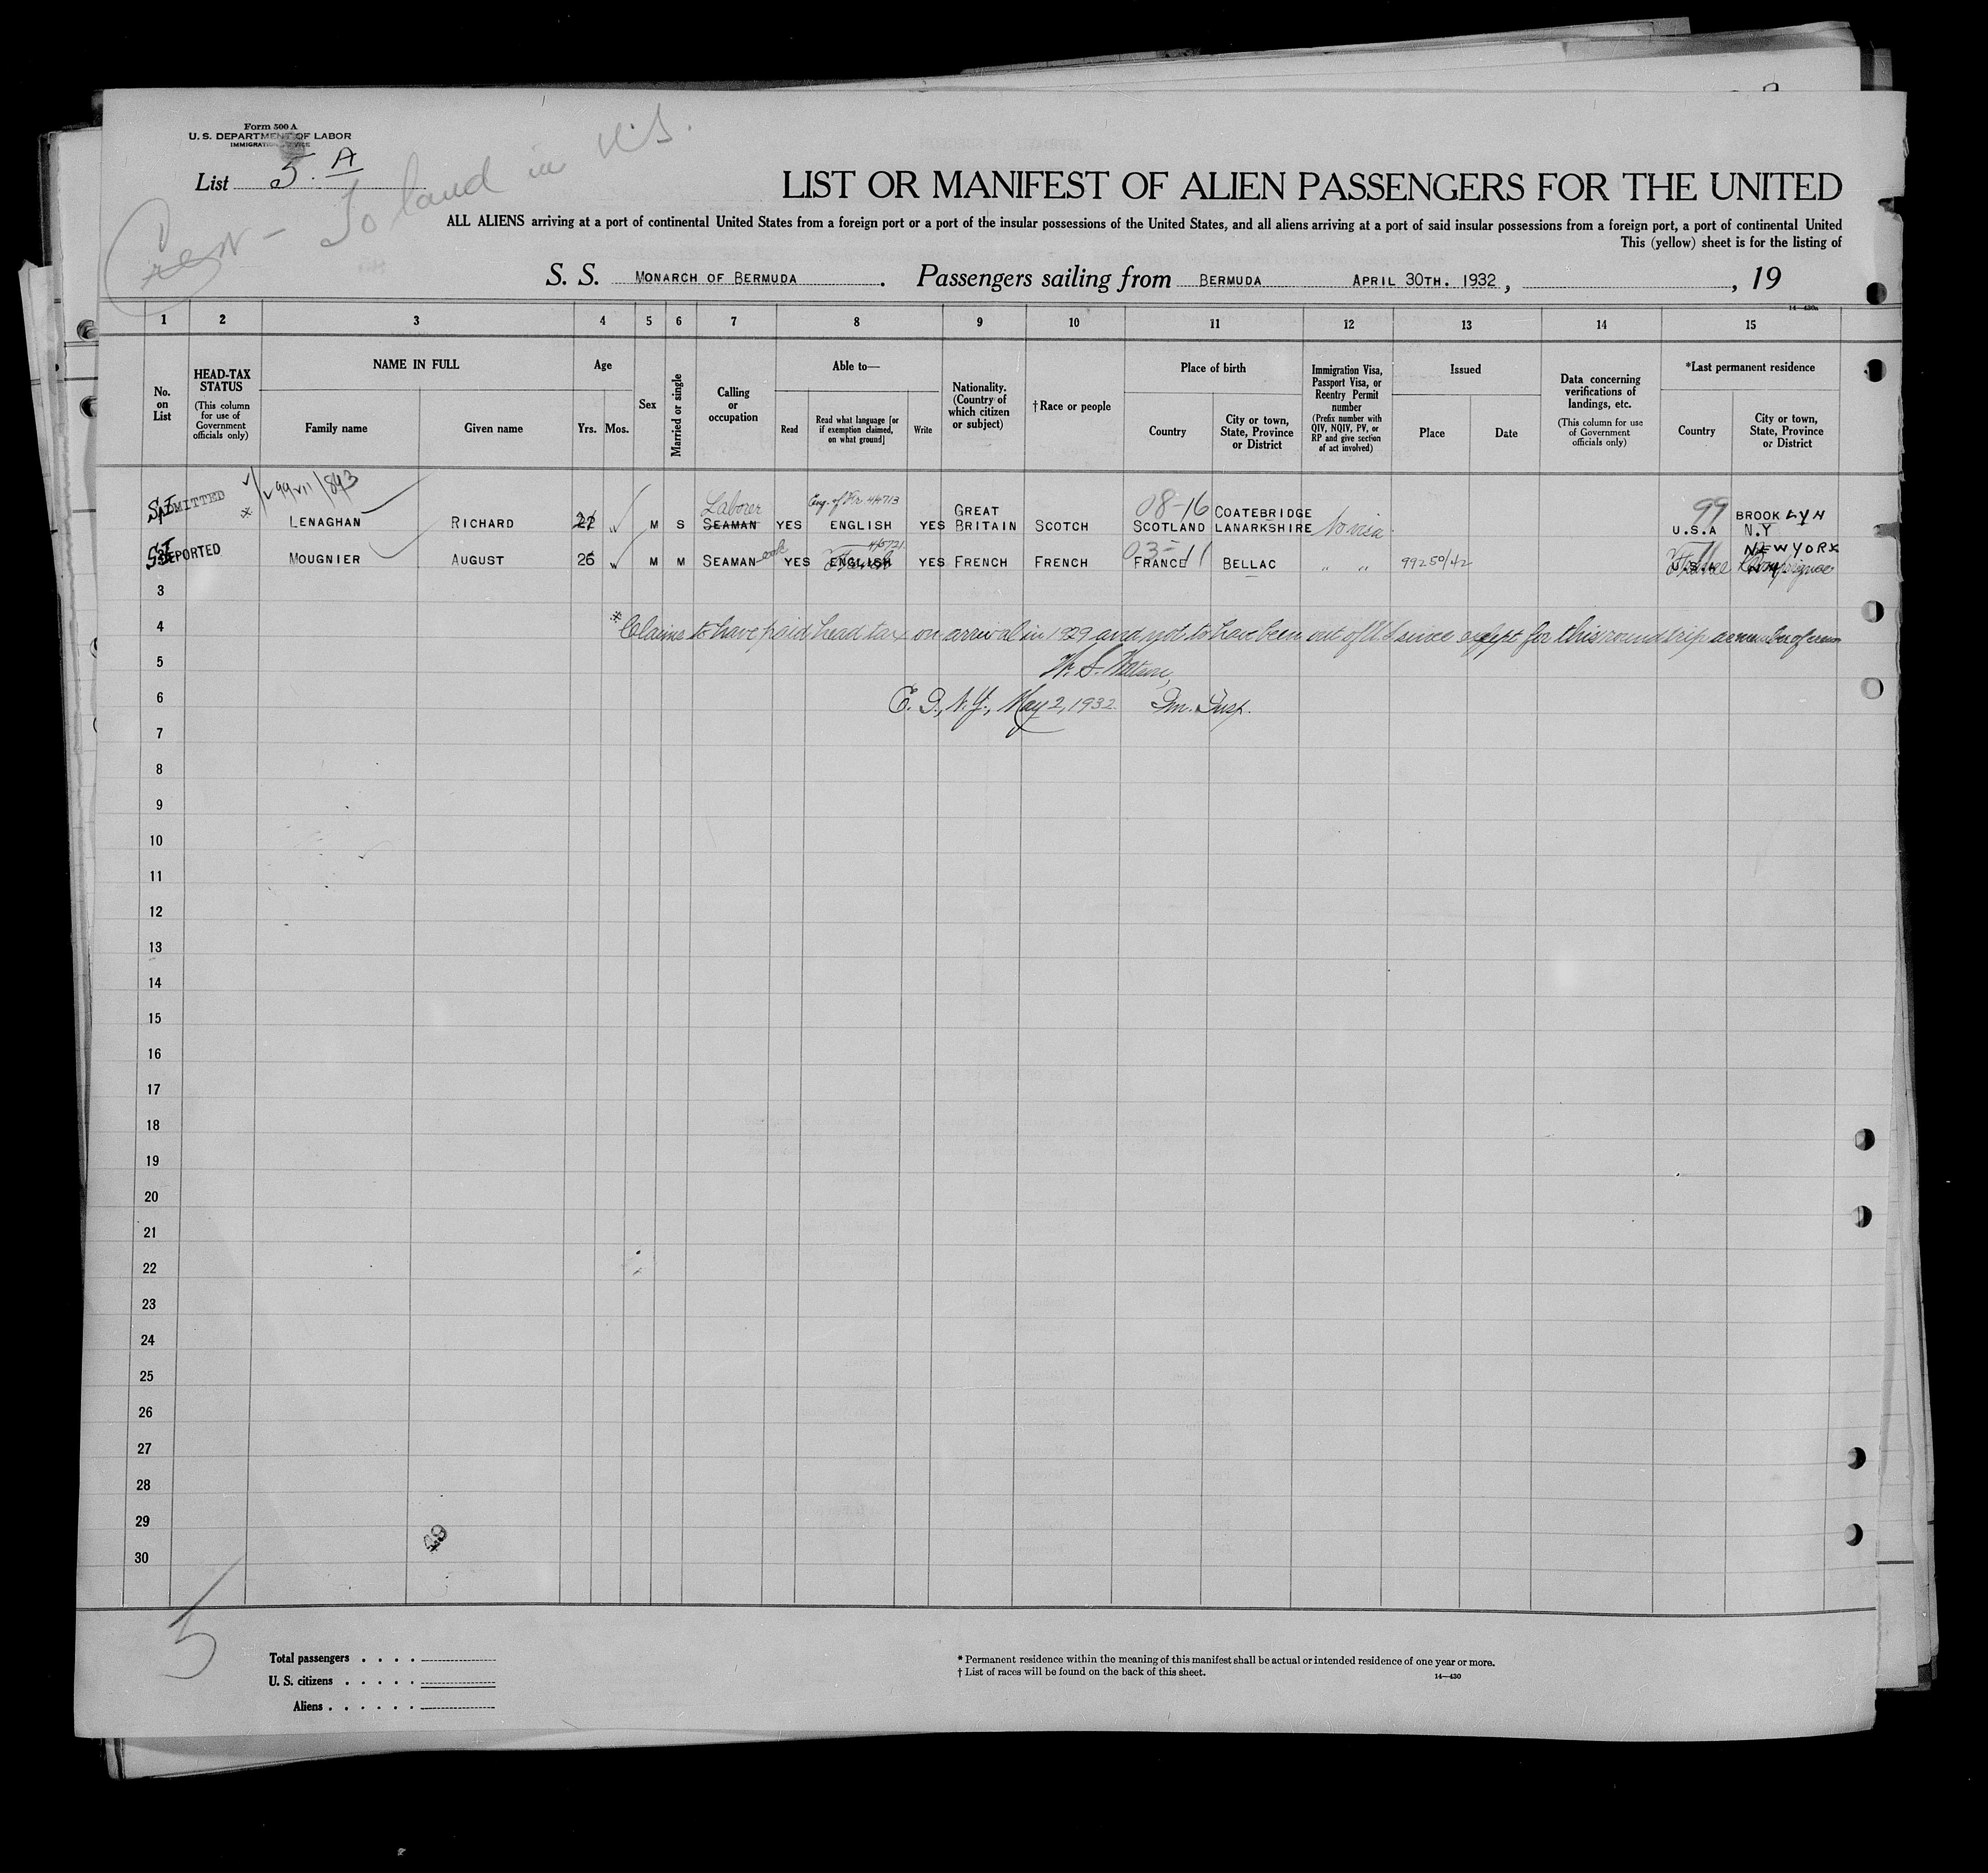 Form 500 A
U. S. DEPARTMENT OF LABOR
IMMIGRATION SERVICE
List 5. A
To land in U.S.
LIST OR MANIFEST OF ALIEN PASSENGERS FOR THE UNITED
ALL ALIENS arriving at a port of continental United States from a foreign port or a port of the insular possessions of the United States, and all aliens arriving at a port of said insular possessions from a foreign port, a port of continental United
This (yellow) sheet is for the listing of
S. S. MONARCH OF BERMUDA. Passengers sailing from BERMUDA APRIL 30TH. 1932, , 19
14—430a
1 2 3 4 5 6 7 8 9 10 11 12 13 14 15
No. on List
HEAD-TAX STATUS (This column for use of Government officials only)
NAME IN FULL
Family name
Given name
Age
Yrs. Mos.
Sex
Married or single
Calling or occupation
Able to—
Read
Read what language [or if exemption claimed, on what ground]
Write
Nationality. (Country of which citizen or subject)
†Race or people
Place of birth
Country
City or town, State, Province or District
Immigration Visa, Passport Visa, or Reentry Permit number (Prefix number with QIV, NQIV, PV, or RP and give section of act involved)
Issued
Place
Date
Data concerning verifications of landings, etc. (This column for use of Government officials only)
*Last permanent residence
Country
City or town, State, Province or District
ADMITTED Laborer 08-16 99
LENAGHAN RICHARD M S SEAMAN YES ENGLISH YES GREAT BRITAIN SCOTCH SCOTLAND COATEBRIDGE LANARKSHIRE No visa U.S.A BROOKLYN N.Y
DEPORTED 03-11
MOUGNIER AUGUST 26 M M SEAMAN cook YES ENGLISH YES FRENCH FRENCH FRANCE BELLAC " " 99250/42 NEW YORK
3
4
* Claims to have paid head tax on arrival in 1929 and not to have been out of U.S since except for this round trip as member of crew
5
W. S. Watson,
6
E. I., N.Y., May 2, 1932. Im. Insp.
7
8
9
10
11
12
13
14
15
16
17
18
19
20
21
22
23
24
25
26
27
28
29
30
5
Total passengers . . . .
U. S. citizens . . . . .
Aliens . . . . . .
* Permanent residence within the meaning of this manifest shall be actual or intended residence of one year or more.
† List of races will be found on the back of this sheet.
14—430